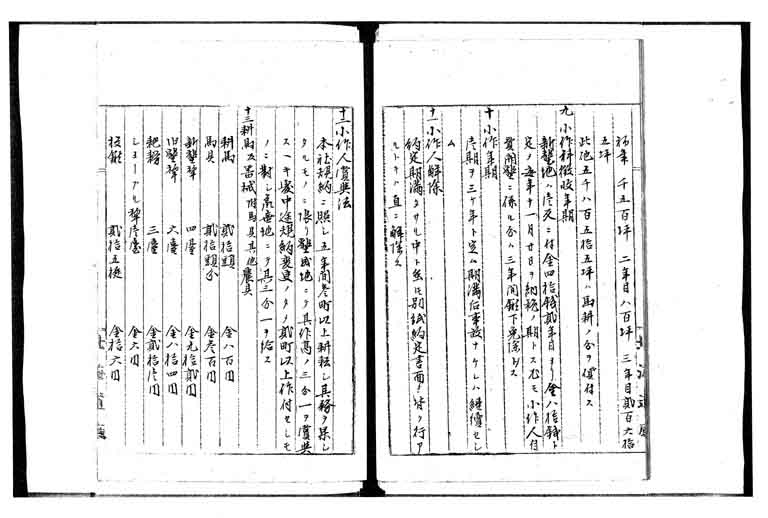 初年 千五百坪 二年目八百坪 三年目貳百六拾
五坪
此他五千八百五拾五坪ハ馬耕ノ分ヲ償付ス
九 小作料徴收年期
新墾地ハ壱反ニ付金四拾銭貳年目ヨリ金八拾銭ト
定メ毎年十一月廿日ヲ納税ノ期トス尤モ小作人自
費開墾ニ係ル分ハ三年間鍬下免除ス
十 小作年期
壱期ヲ三ケ年ト定ム期満后事故ナケレハ継續セシ
ム
十一 小作人解除
約定期満タサル中ト雖モ別紙約定書面ニ背ク行ア
ルトキハ直ニ解除ス
十二 小作人賞與法
本社規約ニ照シ五年間壱町以上耕耘シ其務ヲ果シ
タルモノニ限リ墾成地ニテ其作高ノ三分一ヲ賞與
スヘキ処中途規約変更ノタメ貳町以上作付セシモ
ノニ對シ素地ニテ其三分一ヲ給ス
十三 耕馬及器械用馬具其他農具
耕馬 貳拾頭 金八百円
馬具 貳拾頭分 金壱百円
新墾犂 四臺 金九拾貳円
旧墾犂 六臺 金八拾四円
耙耮 三臺 金貳拾壱円
ショーアル犂 壱臺 金六円
桜鍬 貳拾五挺 金拾六円
北海道廳